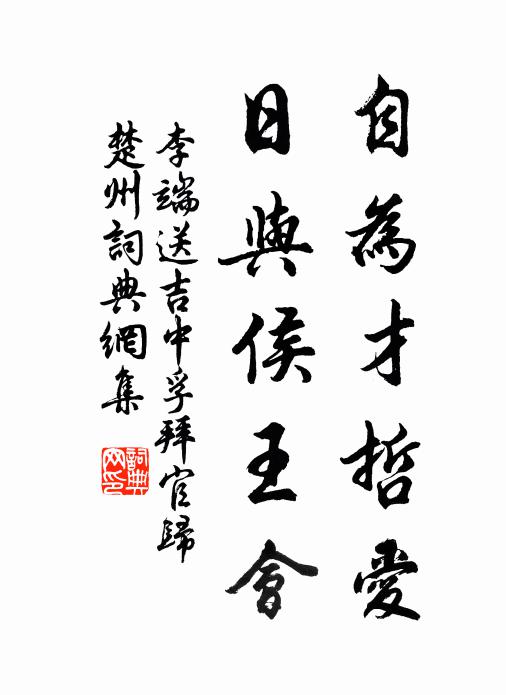 自為才哲愛
日與侯王會
李端送吉中孚拜官歸
楚州詞典網集
詞典網印